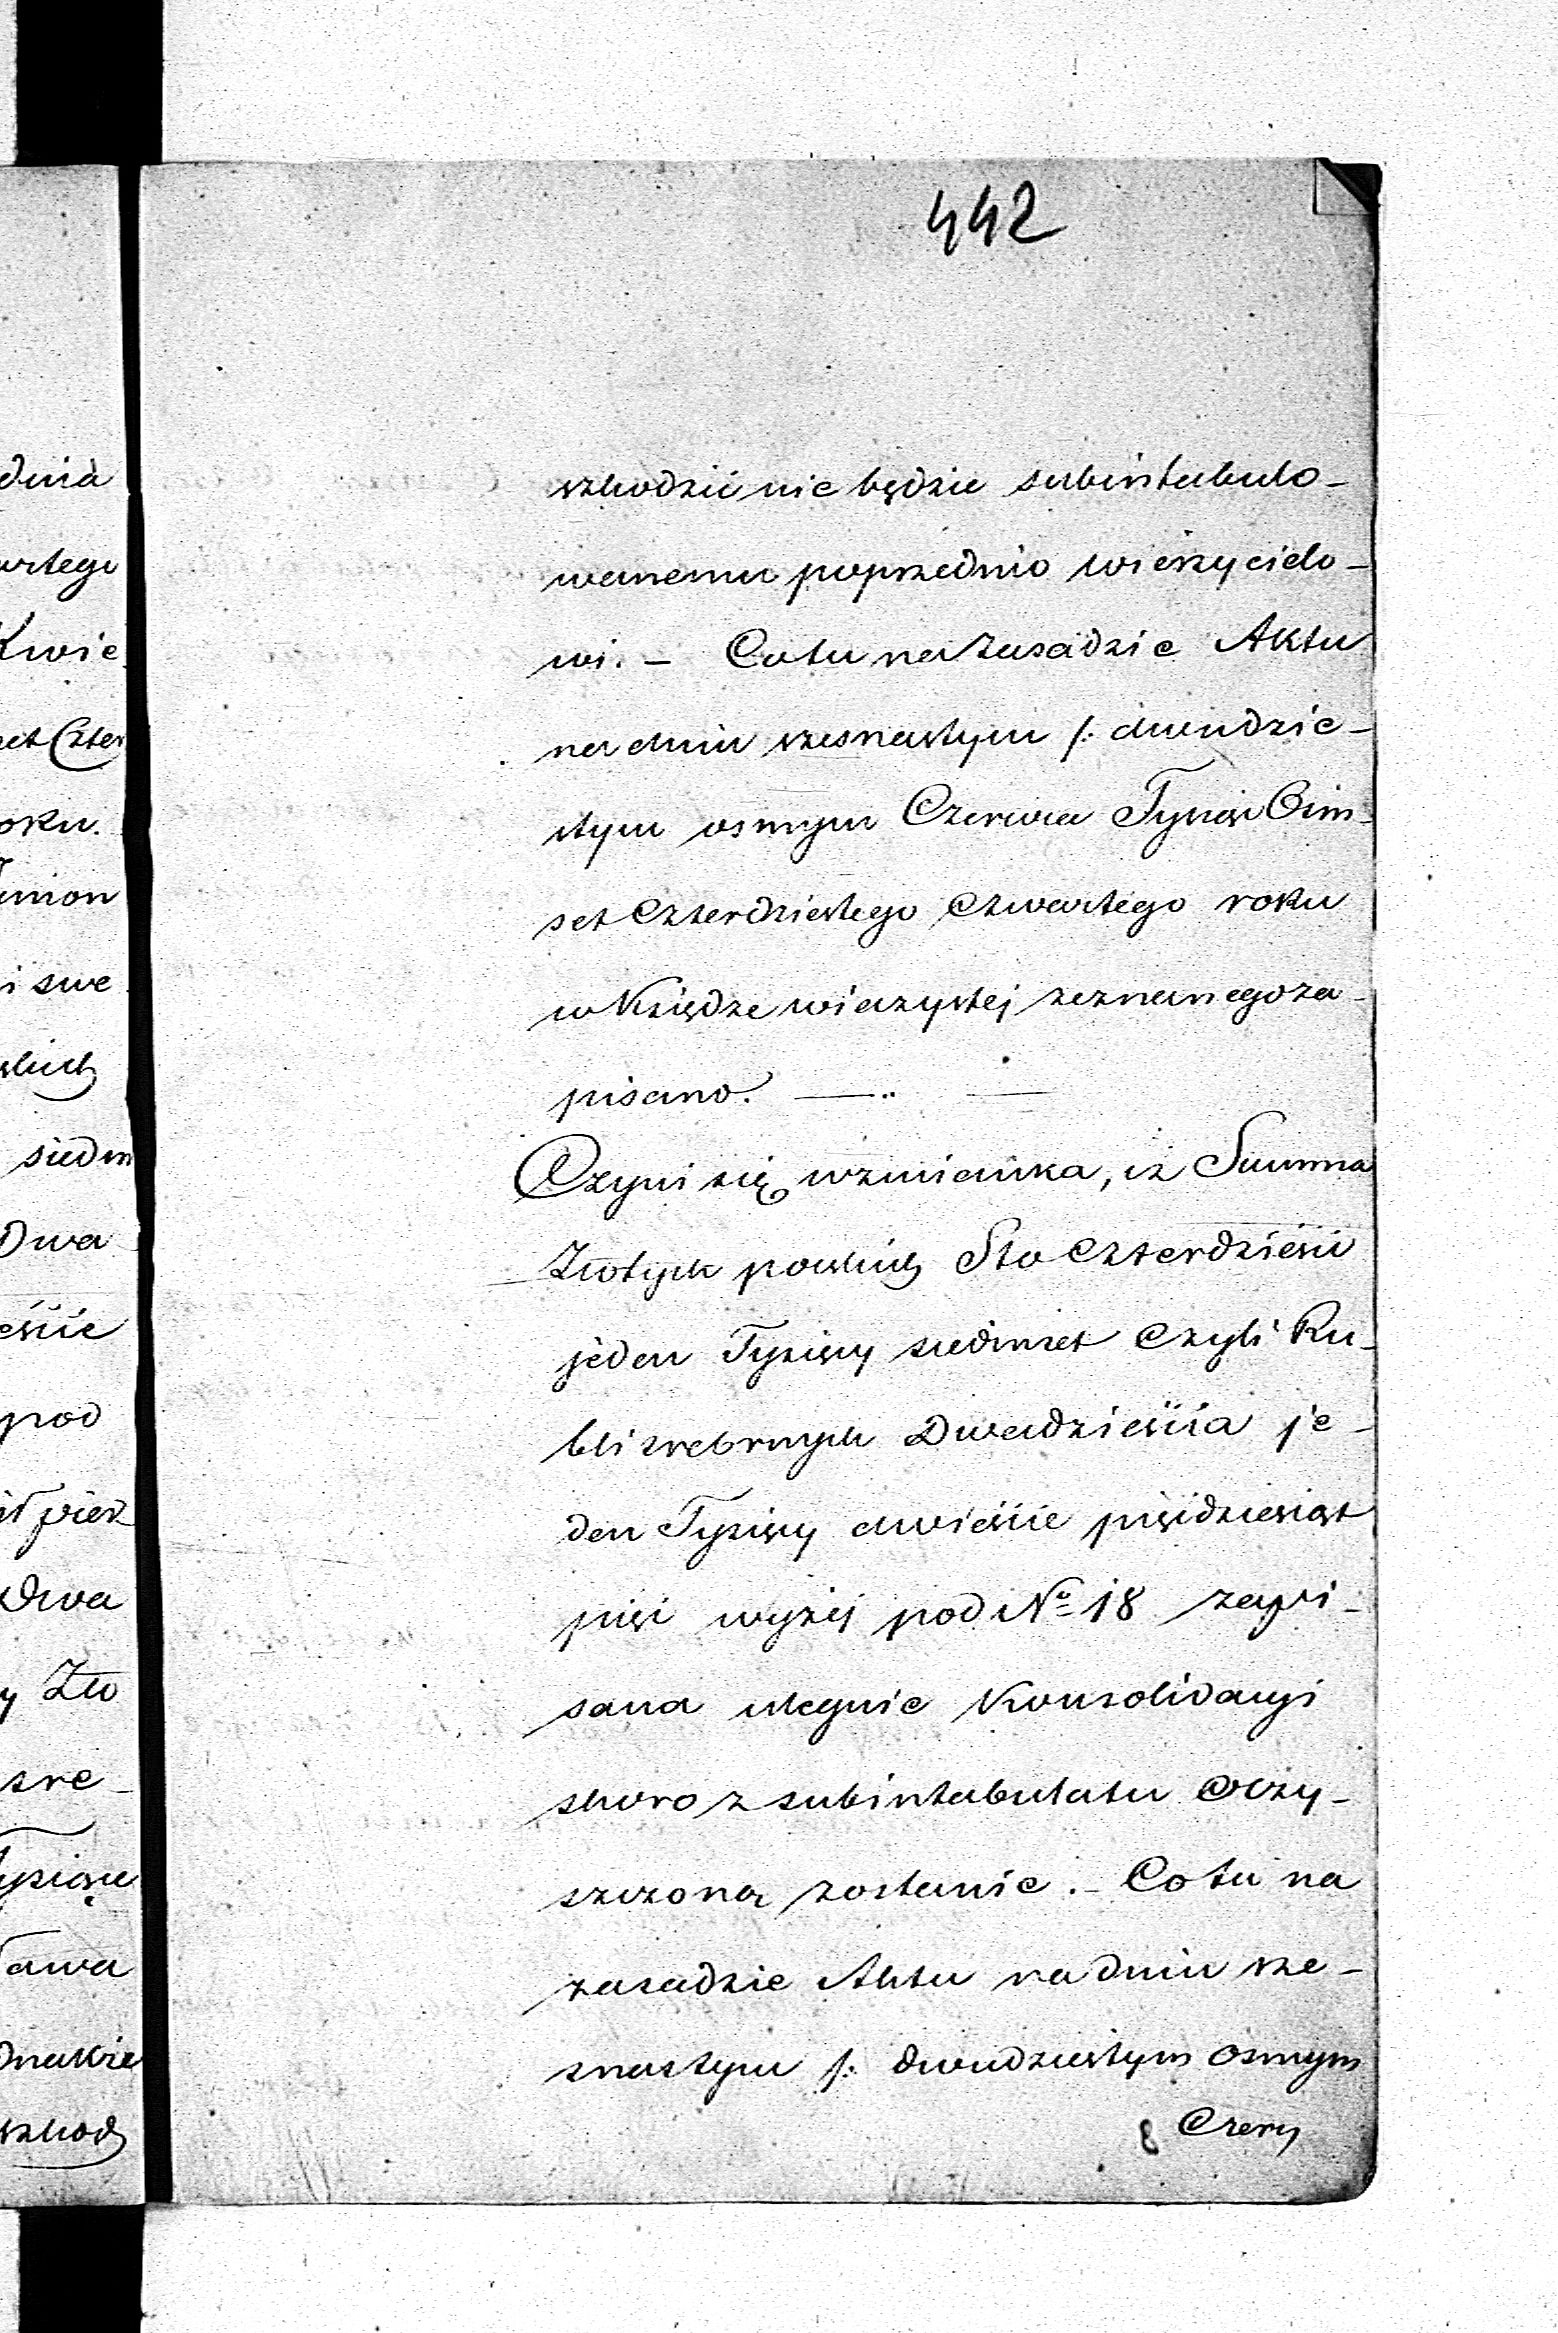 442
szkodzić nie będzie subintabulo-
wanemu poprzednio wierzycielo-
wi. - Co tu na zasadzie Aktu
na dniu szesnastym /: dwudzie-
stym osmym Czerwca Tysiąc Ośm-
set Czterdziestego Czwartego roku
w Księdze wieczystej zeznanego za-
pisano. —
Czyni się wzmianka, iż Summa
Złotych polskich Sto Czterdzieści
jeden Tysięcy siedmset Czyli Ru-
bli srebrnych Dwadzieścia je-
den Tysięcy dwieście pięćdziesiąt
pięć wyżej pod No 18 zapi-
sana ulegnie Konsolidacyi
skoro z subintabulatu oczy-
szczoną zostanie. - Co tu na
zasadzie Aktu na dniu sze-
snastym /: dwudziestym osmym
8 Czerw
dnia
artego
Kwie
set Czter
oku.
i swe
skich
siedm
Dwa
eście
pod
Dwa
y Zło
sre-
Tysiące
szkod